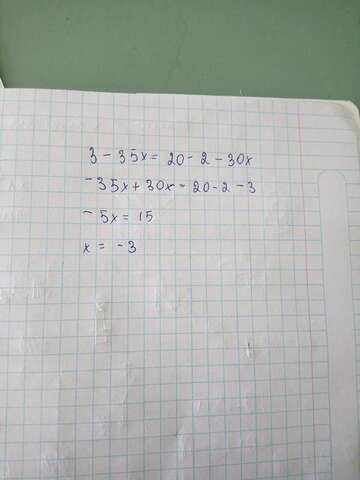 3 - 35x = 20 - 2 - 30x
-35x + 30x = 20 - 2 - 3
- 5x = 15
x = -3